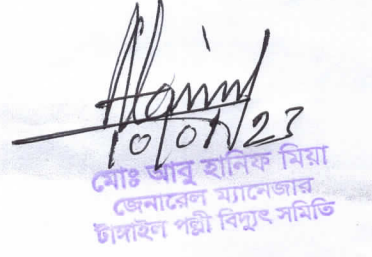 10/01/23
মোঃ আবু হানিফ মিয়া
জেনারেল ম্যানেজার
টাঙ্গাইল পল্লী বিদ্যুৎ সমিতি